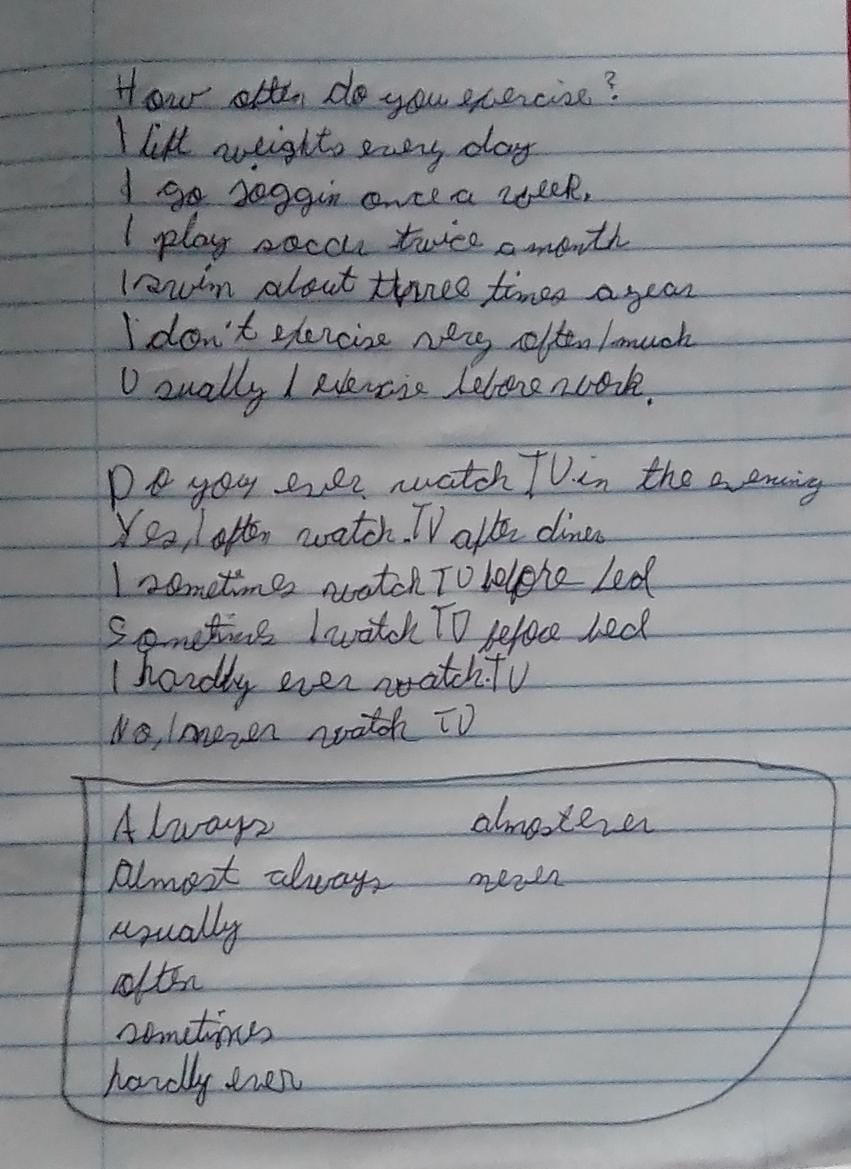 How often do you exercise?
I lift weights every day
I go joggin once a week.
I play soccer twice a month
I swim about three times a year
I don't exercise very often/much
Usually I exercise before work.
Do you ever watch TV in the evening
Yes, I often watch TV after diner
I sometimes watch TV before bed
Sometimes I watch TV before bed
I hardly ever watch TV
No, I never watch TV
Always almost ever
Almost always never
usually
often
sometimes
hardly ever